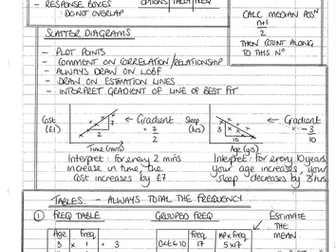 - RESPONSE BOXES
- DO NOT OVERLAP
OPTIONS
FREQ
CALC MEDIAN POS^N
n+1
2
THEN COUNT ALONG
TO THIS N°
SCATTER DIAGRAMS
- PLOT POINTS
- COMMENT ON CORRELATION/RELATIONSHIP
- ALWAYS DRAW ON LOBF
- DRAW ON ESTIMATION LINES
- INTERPRET GRADIENT OF LINE OF BEST FIT
Cost
(£)
7
2
Time (mins)
Gradient
= 7
2
Sleep
(hrs)
3
10
Age (yrs)
Gradient
= -3
10
Interpret: for every 2 mins
increase in time, the
cost increases by £7
Interpret: for every 10 years
your age increases, your
sleep decreases by 3 hours
TABLES - ALWAYS TOTAL THE FREQUENCY
① FREQ TABLE
GROUPED FREQ
ESTIMATE
THE
MEAN
Age
Freq
3 × 1 = 3
Freq
MP × Freq
0<t≤10
17
5×17